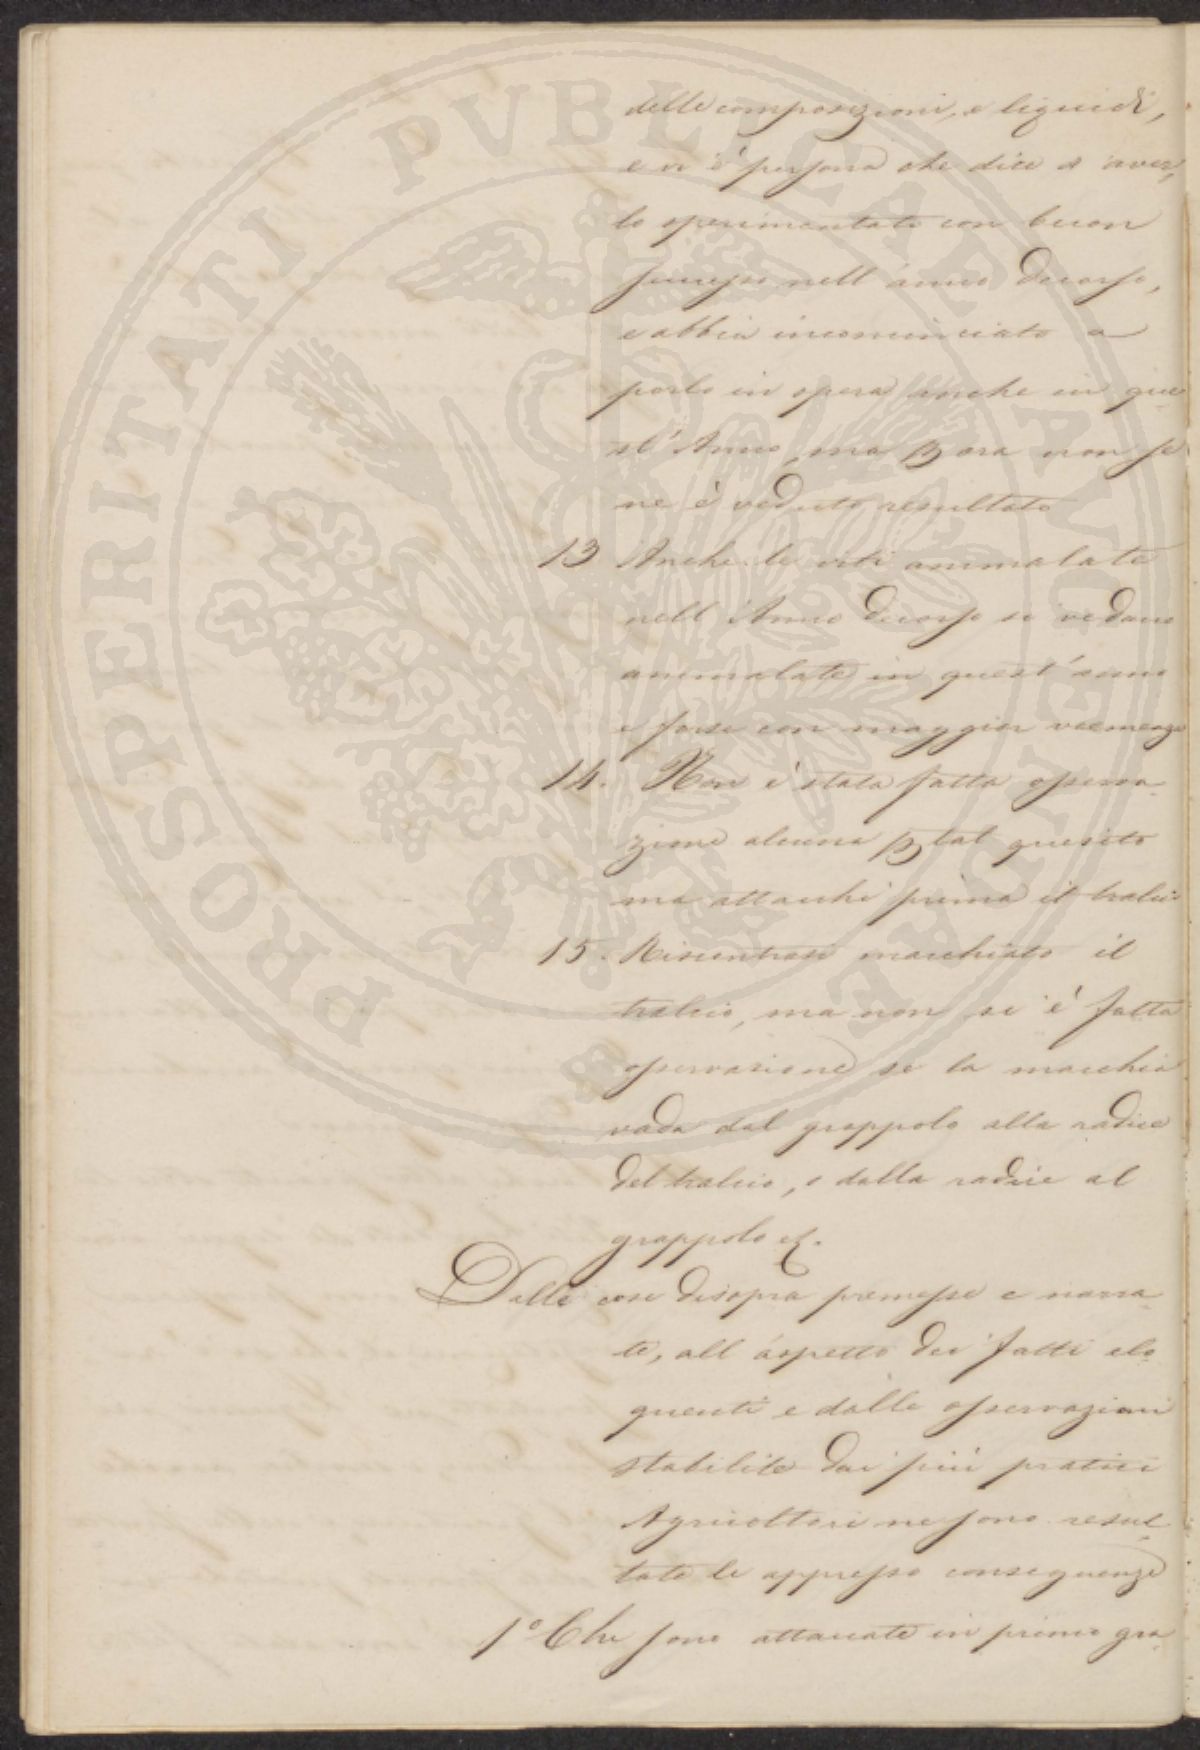 PROSPERITATI PVBLICAE AVGENDAE
delle composizioni, e liquidi,
e vi è persona che dice d'aver,
lo sperimentato con buon
successo nell'anno decorso,
e abbia incominciato a
porlo in opera anche in que
st'Anno, ma p ora non se
ne è veduto resultato
13 Anche le viti ammalate
nell'Anno decorso si vedano
ammalate in quest'anno
e forse con maggior veemenza
14. Non è stata fatta osserva-
zione alcuna p tal quesito
ma attacchi prima il tralcio
15. Riscontrasi macchiato il
tralcio, ma non si è fatta
osservazione se la macchia
vada dal grappolo alla radice
del tralcio, o dalla radice al
grappolo
Dalle cose disopra premesse e narra-
te, all'aspetto dei fatti elo
quenti e dalle osservazioni
stabilite dai più pratici
Agricoltori ne sono resul-
tate le appresso conseguenze
1° Che sono attaccate in primo gra